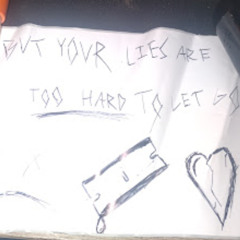 BUT YOUR LIES ARE
TOO HARD TO LET GO